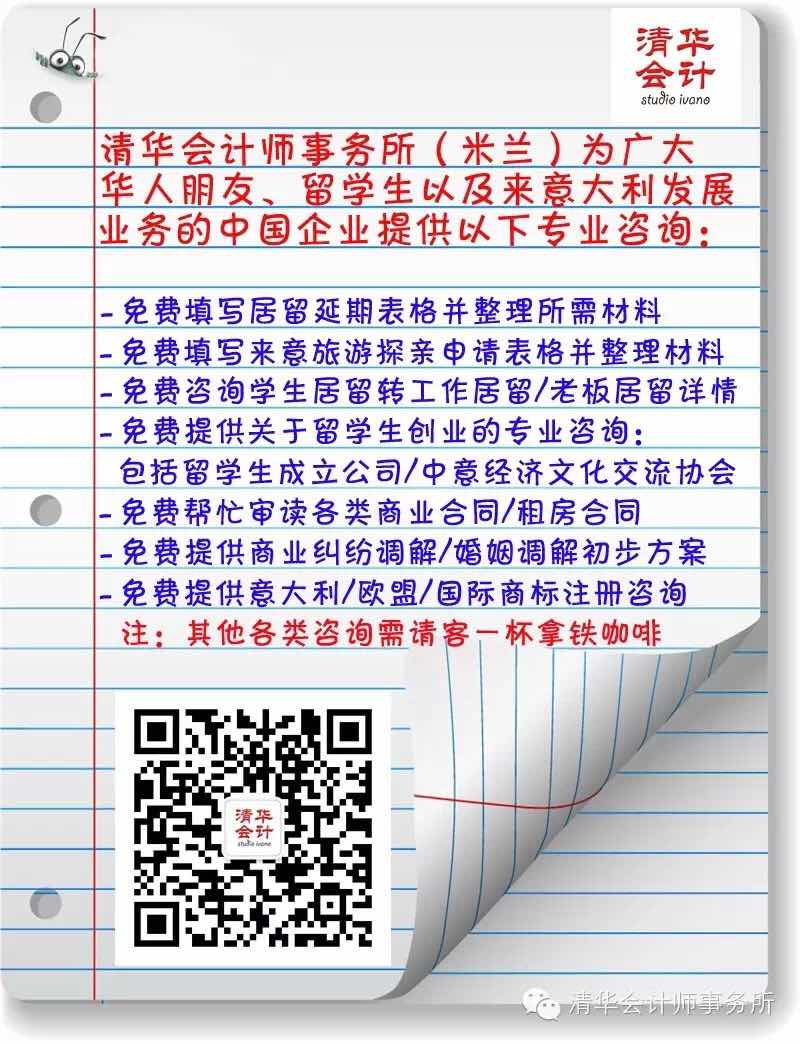 清华
会计
studio ivano
清华会计师事务所（米兰）为广大
华人朋友、留学生以及来意大利发展
业务的中国企业提供以下专业咨询：
- 免费填写居留延期表格并整理所需材料
- 免费填写来意旅游探亲申请表格并整理材料
- 免费咨询学生居留转工作居留/老板居留详情
- 免费提供关于留学生创业的专业咨询：
包括留学生成立公司/中意经济文化交流协会
- 免费帮忙审读各类商业合同/租房合同
- 免费提供商业纠纷调解/婚姻调解初步方案
- 免费提供意大利/欧盟/国际商标注册咨询
注：其他各类咨询需请客一杯拿铁咖啡
清华
会计
studio ivano
清华会计师事务所